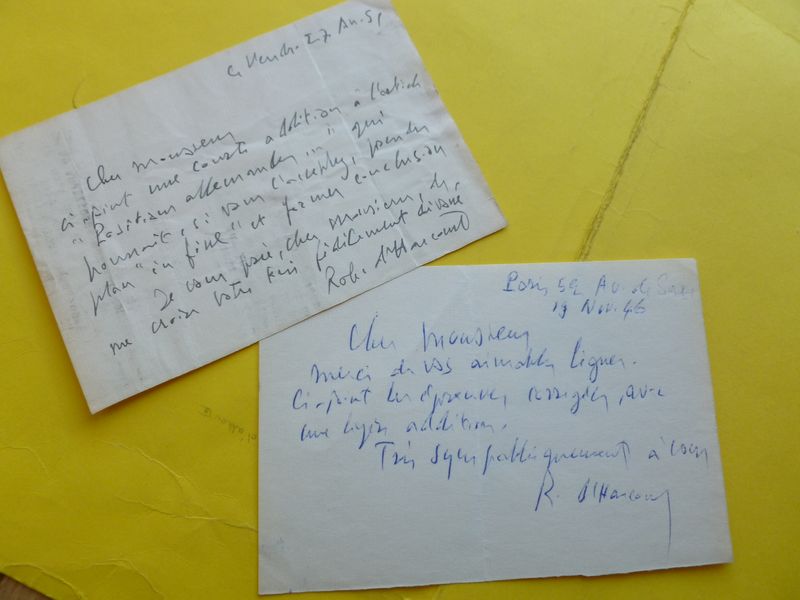 Ce Vendr. 27 Av. 51
Cher Monsieur
ci-joint une courte addition à l'article
"Positions allemandes" qui
pourrait, si vous l'acceptez, prendre
place "in fine" et former conclusion
Je vous prie, cher Monsieur, de
me croire votre très fidèlement dévoué
Rob. d'Harcourt
Paris 52 Av. de Saxe
19 Nov. 46
Cher Monsieur
Merci de vos aimables lignes.
Ci-joint les épreuves corrigées, avec
une légère addition.
Très sympathiquement à vous
R. d'Harcourt